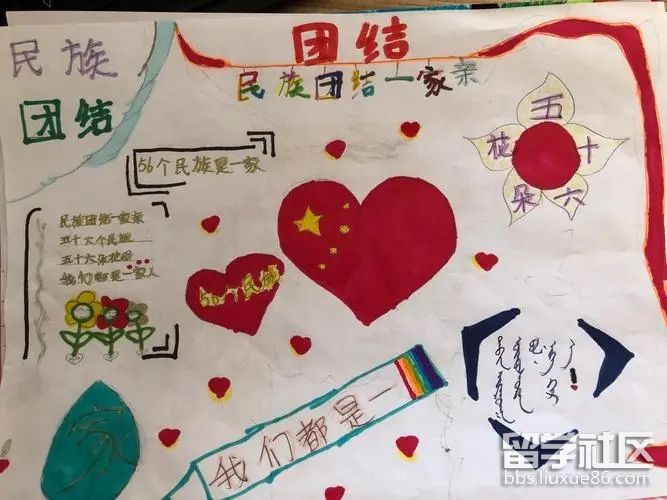 民族
团结
团结
民族团结一家亲
五十六朵花
56个民族是一家
民族团结一家亲
五十六个民族
五十六朵花
我们都是一家人
56个民族
我们都是一
家
留学社区
bbs.liuxue86.com